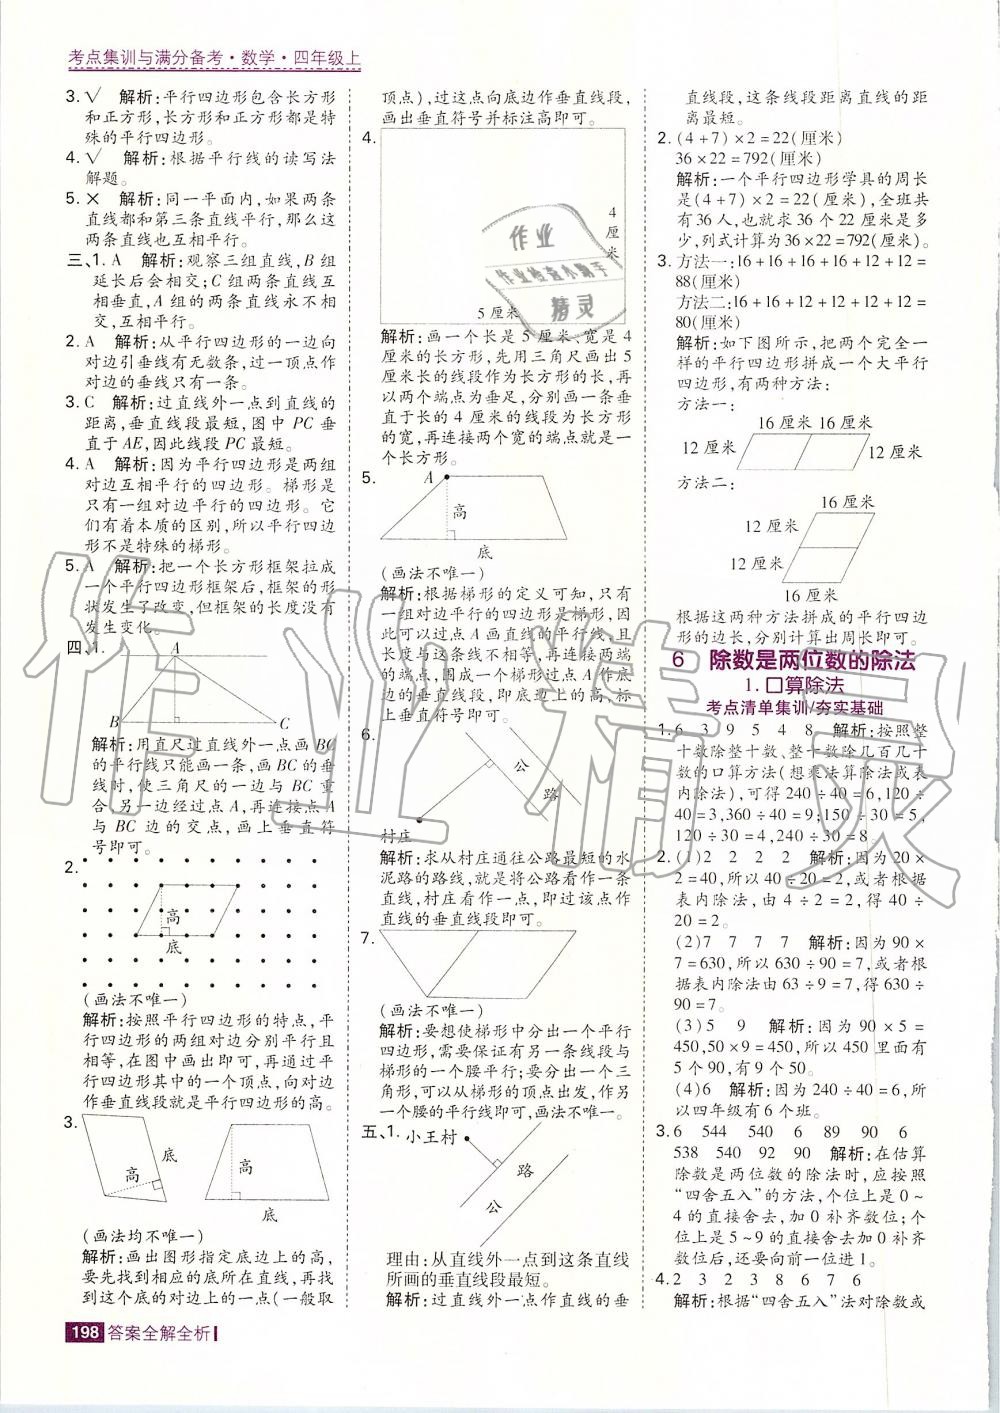 考点集训与满分备考·数学·四年级上
3.√ 解析:平行四边形包含长方形
和正方形,长方形和正方形都是特
殊的平行四边形。
4.√ 解析:根据平行线的读写法
解题。
5.× 解析:同一平面内,如果两条
直线都和第三条直线平行,那么这
两条直线也互相平行。
三、1.A 解析:观察三组直线,B组
延长后会相交;C组两条直线互
相垂直,A组的两条直线永不相
交,互相平行。
2.A 解析:从平行四边形的一边向
对边引垂线有无数条,过一顶点作
对边的垂线只有一条。
3.C 解析:过直线外一点到直线的
距离,垂直线段最短,图中PC垂
直于AE,因此线段PC最短。
4.A 解析:因为平行四边形是两组
对边互相平行的四边形。梯形是
只有一组对边平行的四边形。它
们有着本质的区别,所以平行四边
形不是特殊的梯形。
5.A 解析:把一个长方形框架拉成
一个平行四边形框架后,框架的形
状发生了改变,但框架的长度没有
发生变化。
四、1.
A
B
C
解析:用直尺过直线外一点画BC
的平行线只能画一条,画BC的垂
线时,使三角尺的一边与BC重
合,另一边经过点A,再连接点A
与BC边的交点,画上垂直符
号即可。
2.
高
底
(画法不唯一)
解析:按照平行四边形的特点,平
行四边形的两组对边分别平行且
相等,在图中画出即可,再通过平
行四边形其中的一个顶点,向对边
作垂直线段就是平行四边形的高。
3.
高
底
高
底
(画法均不唯一)
解析:画出图形指定底边上的高,
要先找到相应的底所在直线,再找
到这个底的对边上的一点(一般取
顶点),过这点向底边作垂直线段,
画出垂直符号并标注高即可。
4.
4厘米
5厘米
解析:画一个长是5厘米、宽是4
厘米的长方形,先用三角尺画出5
厘米长的线段作为长方形的长,再
以两个端点为垂足,分别画一条垂
直于长的4厘米的线段为长方形
的宽,再连接两个宽的端点就是一
个长方形。
5.
A
高
底
(画法不唯一)
解析:根据梯形的定义可知,只有
一组对边平行的四边形是梯形,因
此可以过点A画直线的平行线,且
长度与线不相等,再连接两端
的端点,围成一个梯形过点A作底
边的垂直线段,即底边上的高,标
上垂直符号即可。
6.
公
路
村庄
解析:求从村庄通往公路最短的水
泥路的路线,就是将公路看作一条
直线,村庄看作一点,即过该点作
直线的垂直线段即可。
7.
(画法不唯一)
解析:要想使梯形中分出一个平行
四边形,需要保证有另一条线段与
梯形的一个腰平行;要分出一个三
角形,可以从梯形的顶点出发,作另
一个腰的平行线即可,画法不唯一。
五、1.
小王村
路
公
理由:从直线外一点到这条直线
所画的垂直线段最短。
解析:过直线外一点作直线的垂
直线段,这条线段距离直线的距
离最短。
2.(4+7)×2=22(厘米)
36×22=792(厘米)
解析:一个平行四边形学具的周长
是(4+7)×2=22(厘米),全班共
有36人,也就求36个22厘米是多
少,列式计算为36×22=792(厘米)。
3.方法一:16+16+16+16+12+12=
88(厘米)
方法二:16+16+12+12+12+12=
80(厘米)
解析:如下图所示,把两个完全一
样的平行四边形拼成一个大平行
四边形,有两种方法:
方法一:
16厘米 16厘米
12厘米
12厘米
方法二:
16厘米
12厘米
12厘米
16厘米
根据这两种方法拼成的平行四边
形的边长,分别计算出周长即可。
6 除数是两位数的除法
1.口算除法
考点清单集训/夯实基础
1.6 3 9 5 4 8 解析:按照整
十数除整十数、整十数除几百几十
数的口算方法(想乘法算除法或表
内除法),可得240÷40=6,120÷
40=3,360÷40=9;150÷30=5,
120÷30=4,240÷30=8。
2.(1)2 2 2 2 解析:因为20×
2=40,所以40÷20=2,或者根据
表内除法,由4÷2=2,得40÷
20=2。
(2)7 7 7 7 解析:因为90×
7=630,所以630÷90=7,或者根
据表内除法由63÷9=7,得630÷
90=7。
(3)5 9 解析:因为90×5=
450,50×9=450,所以450里面有
5个90,有9个50。
(4)6 解析:因为240÷40=6,所
以四年级有6个班。
3.6 544 540 6 89 90 6
538 540 92 90 解析:在估算
除数是两位数的除法时,应按照
“四舍五入”的方法,个位上是0~
4的直接舍去,加0补齐数位;个
位上是5~9的直接舍去加0补齐
数位后,还要向前一位进1。
4.2 3 2 3 8 6 7 6
解析:根据“四舍五入”法对除数或
198 答案全解全析
作业
作业检查小帮手
精灵
作业精灵